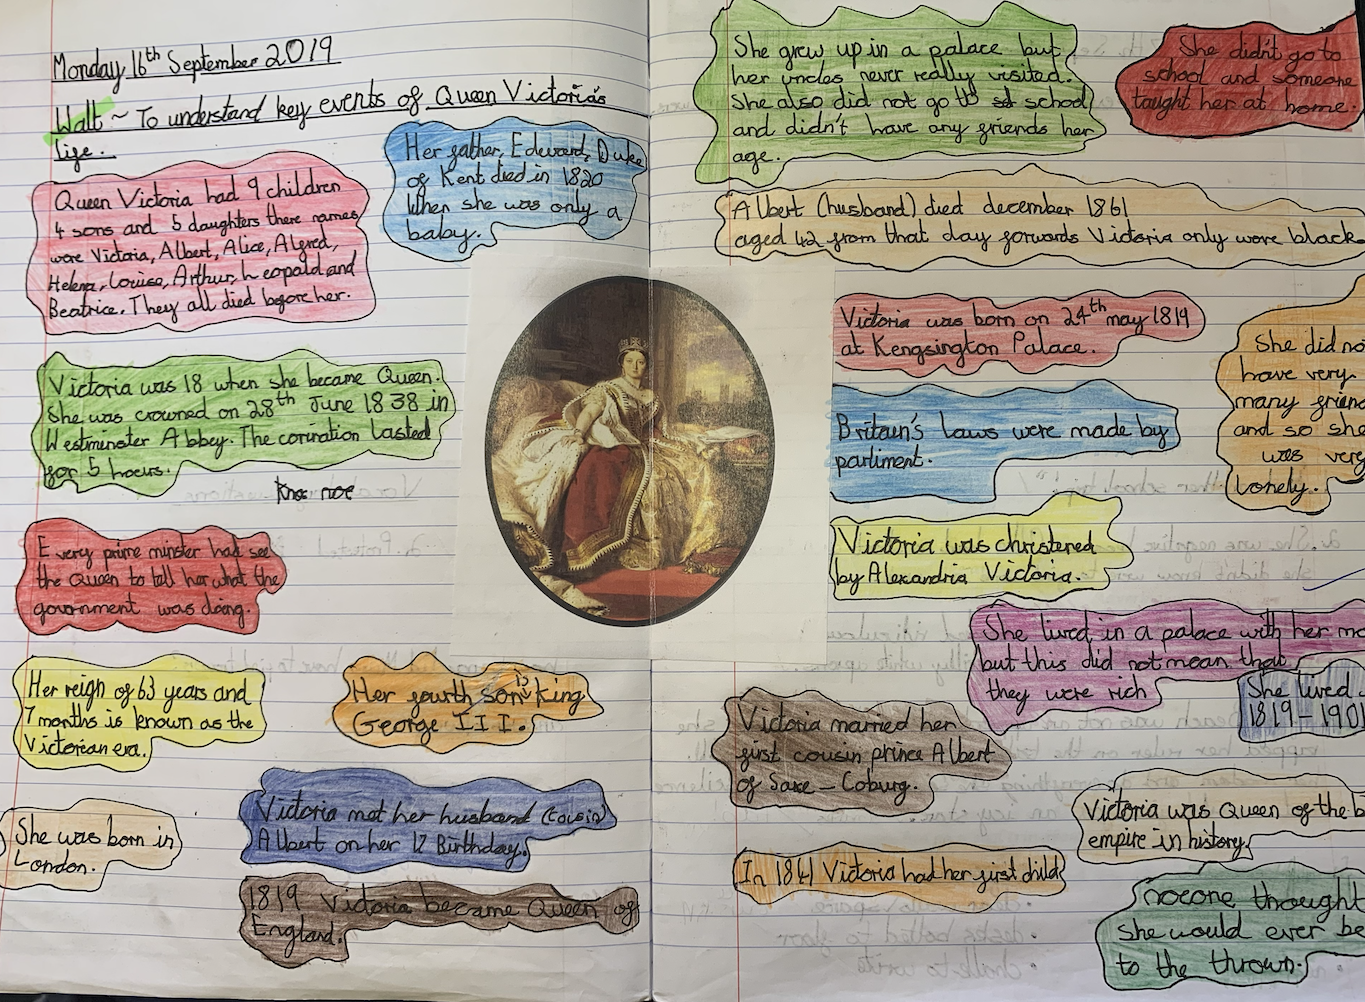 Monday 16th September 2019
Walt ~ To understand key events of Queen Victoria's
life.
Queen Victoria had 9 children
4 sons and 5 daughters there names
were Victoria, Albert, Alice, Alfred,
Helena, Louise, Arthur, Leopald and
Beatrice. They all died before her.
Her father, Edward, Duke
of Kent died in 1820
When she was only a
baby.
Victoria was 18 when she became Queen.
She was crowned on 28th June 1838 in
Westminster Abbey. The corination lasted
for 5 hours.
Every prime minster had see
the Queen to tell her what the
government was doing.
Her reign of 63 years and
7 months is known as the
Victorian era.
Her fourth son is King
George III.
She was born in
London.
Victoria met her husband (cousin)
Albert on her 17 Birthday.
1819 Victoria became Queen of
England.
She grew up in a palace but
her uncles never really visited.
She also did not go to school
and didn't have any friends her
age.
She didn't go to
school and someone
taught her at home.
Albert (husband) died december 1861
aged 42 from that day forwards Victoria only wore black
Victoria was born on 24th may 1819
at Kengsington Palace.
She did no
have very
many frien
and so she
was very
lonely.
Britain's laws were made by
parliment.
Victoria was christered
by Alexandria Victoria.
She lived in a palace with her mo
but this did not mean that
they were rich
She lived
1819-1901
Victoria married her
first cousin prince Albert
of Saxe-Coburg.
Victoria was Queen of the b
empire in history.
In 1841 Victoria had her first child
nocone thought
she would ever be
to the thrown.